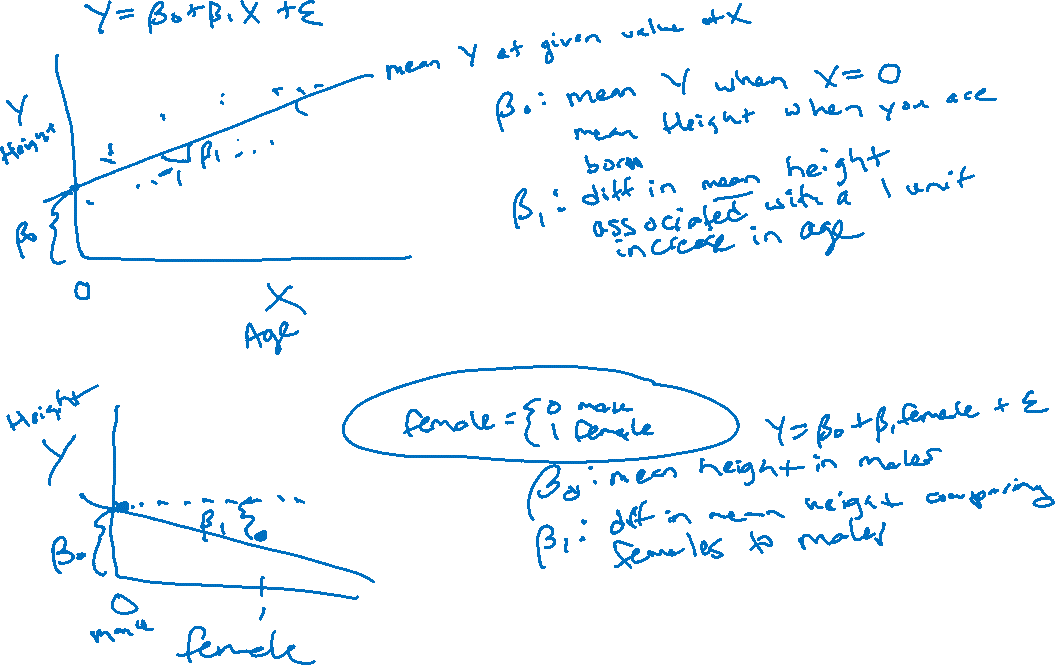 Y = β₀ + β₁ X + ε
mean Y at given value of X
Y
Height
β₁
1
β₀
0
X
Age
β₀: mean Y when X = 0
mean Height when you are
born
β₁: diff in mean height
associated with a 1 unit
increase in age
Height
Y
female = { 0 male
1 female
Y = β₀ + β₁ female + ε
β₀: mean height in males
β₁: diff in mean height comparing
females to males
β₁
β₀
0
1
female